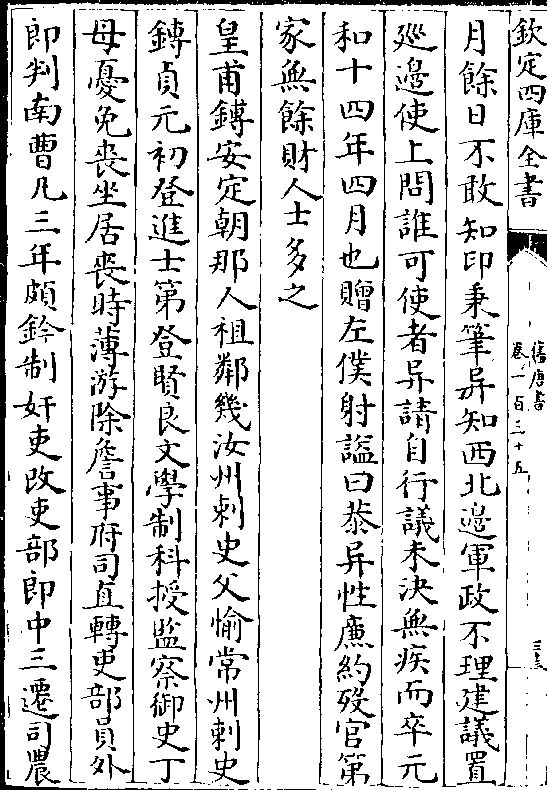 欽定四庫全書
舊唐書
卷一百三十五
三
月餘日不敢知印秉筆异知西北邊軍政不理建議置
廵邊使上問誰可使者异請自行議未決無疾而卒元
和十四年四月也贈左僕射謚曰恭异性亷約歿官第
家無餘財人士多之
皇甫鎛安定朝那人祖鄰幾汝州刺史父愉常州刺史
鎛貞元初登進士第登賢良文學制科授監察御史丁
母憂免喪坐居喪時薄游除詹事府司直轉吏部員外
郎判南曹凡三年頗鈐制奸吏改吏部郎中三遷司農